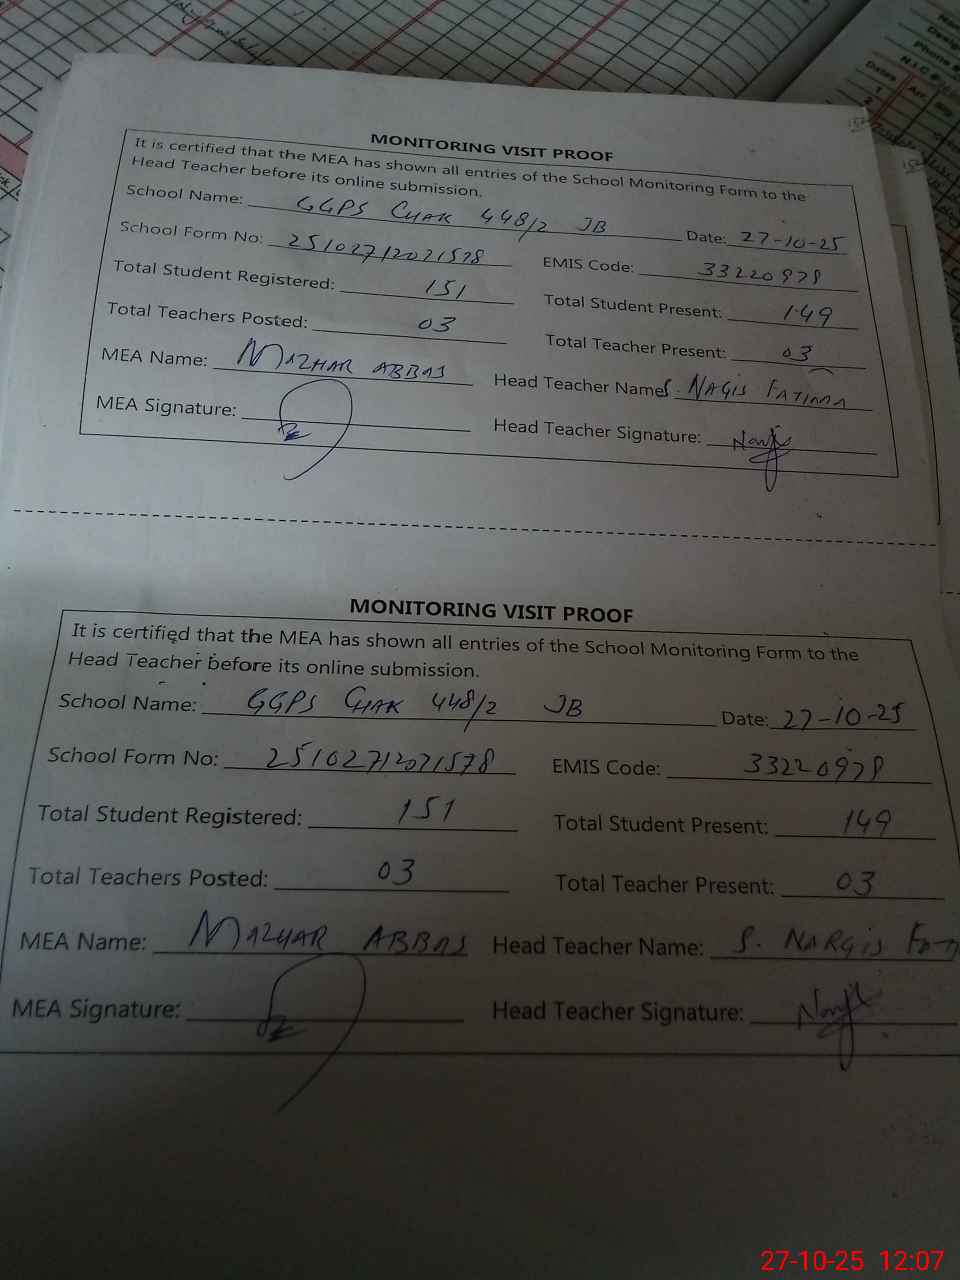 MONITORING VISIT PROOF
It is certified that the MEA has shown all entries of the School Monitoring Form to the
Head Teacher before its online submission.
School Name: GGPS CHAK 448/2 JB Date: 27-10-25
School Form No: 25102712021578 EMIS Code: 33220978
Total Student Registered: 151 Total Student Present: 149
Total Teachers Posted: 03 Total Teacher Present: 03
MEA Name: MAZHAR ABBAS Head Teacher Name: S. NAGIS FATIMA
MEA Signature: Head Teacher Signature:
MONITORING VISIT PROOF
It is certified that the MEA has shown all entries of the School Monitoring Form to the
Head Teacher before its online submission.
School Name: GGPS CHAK 448/2 JB Date: 27-10-25
School Form No: 25102712021578 EMIS Code: 33220978
Total Student Registered: 151 Total Student Present: 149
Total Teachers Posted: 03 Total Teacher Present: 03
MEA Name: MAZHAR ABBAS Head Teacher Name: S. NARGIS
MEA Signature: Head Teacher Signature:
27-10-25 12:07